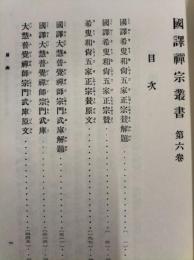 國譯禪宗叢書 第六卷
目次
國譯希叟和尚五家正宗贊解題
國譯希叟和尚五家正宗贊
希叟和尚五家正宗贊原文
國譯大慧普覺禪師宗門武庫解題
國譯大慧普覺禪師宗門武庫
大慧普覺禪師宗門武庫原文
目次